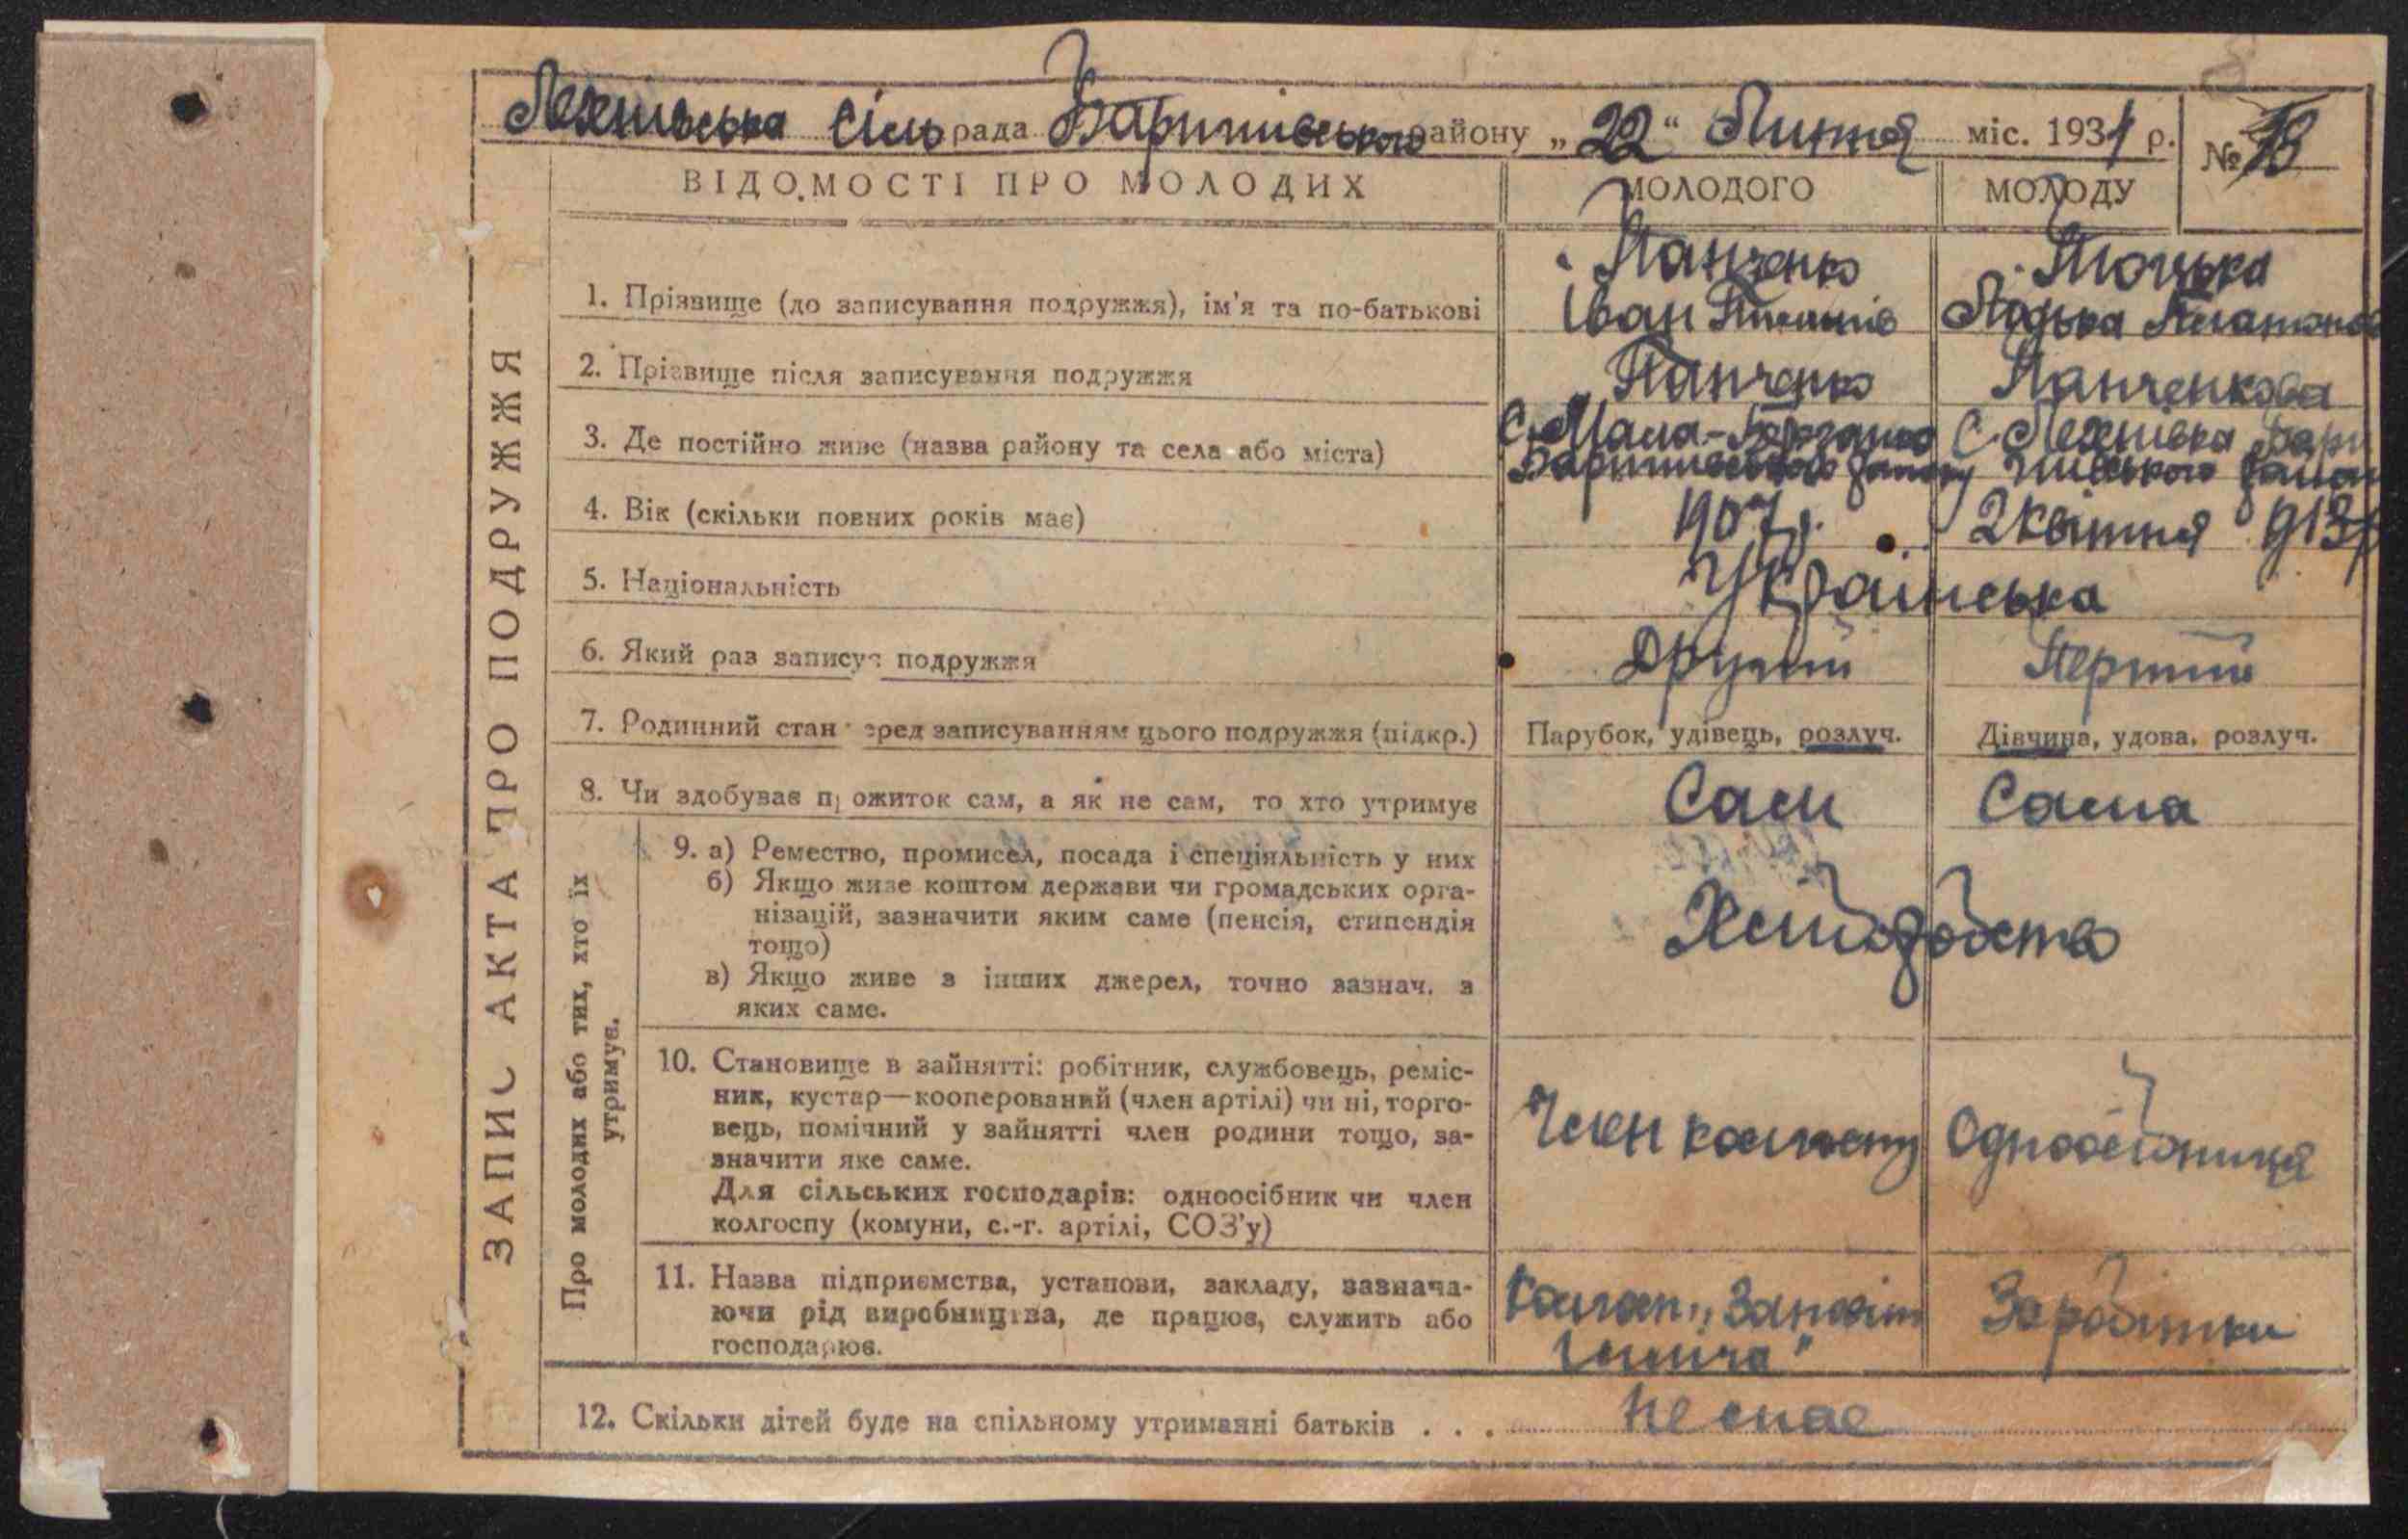 Лехнівська Сільрада Баришівського району „22“ Лютня міс. 1931 р. № 18
ВІДОМОСТІ ПРО МОЛОДИХ МОЛОДОГО МОЛОДУ
ЗАПИС АКТА ПРО ПОДРУЖЖЯ
1. Прізвище (до записування подружжя), ім'я та по-батькові
Панченко
Іван
Тоцька
2. Прізвище після записування подружжя Панченко Панченкова
3. Де постійно живе (назва району та села або міста)
С. Мала-
Баришівського району
С. Лехнівка Бари
шівського район
4. Вік (скільки повних років має) 1907 р. 2 квітня 913 р
5. Національність Українська
6. Який раз записує подружжя Другий Перший
7. Родинний стан перед записуванням цього подружжя (підкр.) Парубок, удівець, розлуч. Дівчина, удова, розлуч.
8. Чи здобуває прожиток сам, а як не сам, то хто утримує Сам Сама
Про молодих або тих, хто їх
утримує.
9. а) Ремество, промисел, посада і спеціяльність у них
б) Якщо живе коштом держави чи громадських орга-
нізацій, зазначити яким саме (пенсія, стипендія
тощо)
в) Якщо живе з інших джерел, точно зазнач. з
яких саме.
Хліборобство
10. Становище в зайнятті: робітник, службовець, реміс-
ник, кустар—кооперований (член артілі) чи ні, торго-
вець, помічний у зайнятті член родини тощо, за-
значити яке саме.
Для сільських господарів: одноосібник чи член
колгоспу (комуни, с.-г. артілі, СОЗ'у)
Член колгоспу Одноосібниця
11. Назва підприємства, установи, закладу, зазнача-
ючи рід виробництва, де працює, служить або
господарює.
Колгосп „Заповіт
Ілліча"
Заробітки
12. Скільки дітей буде на спільному утриманні батьків . . . Немає